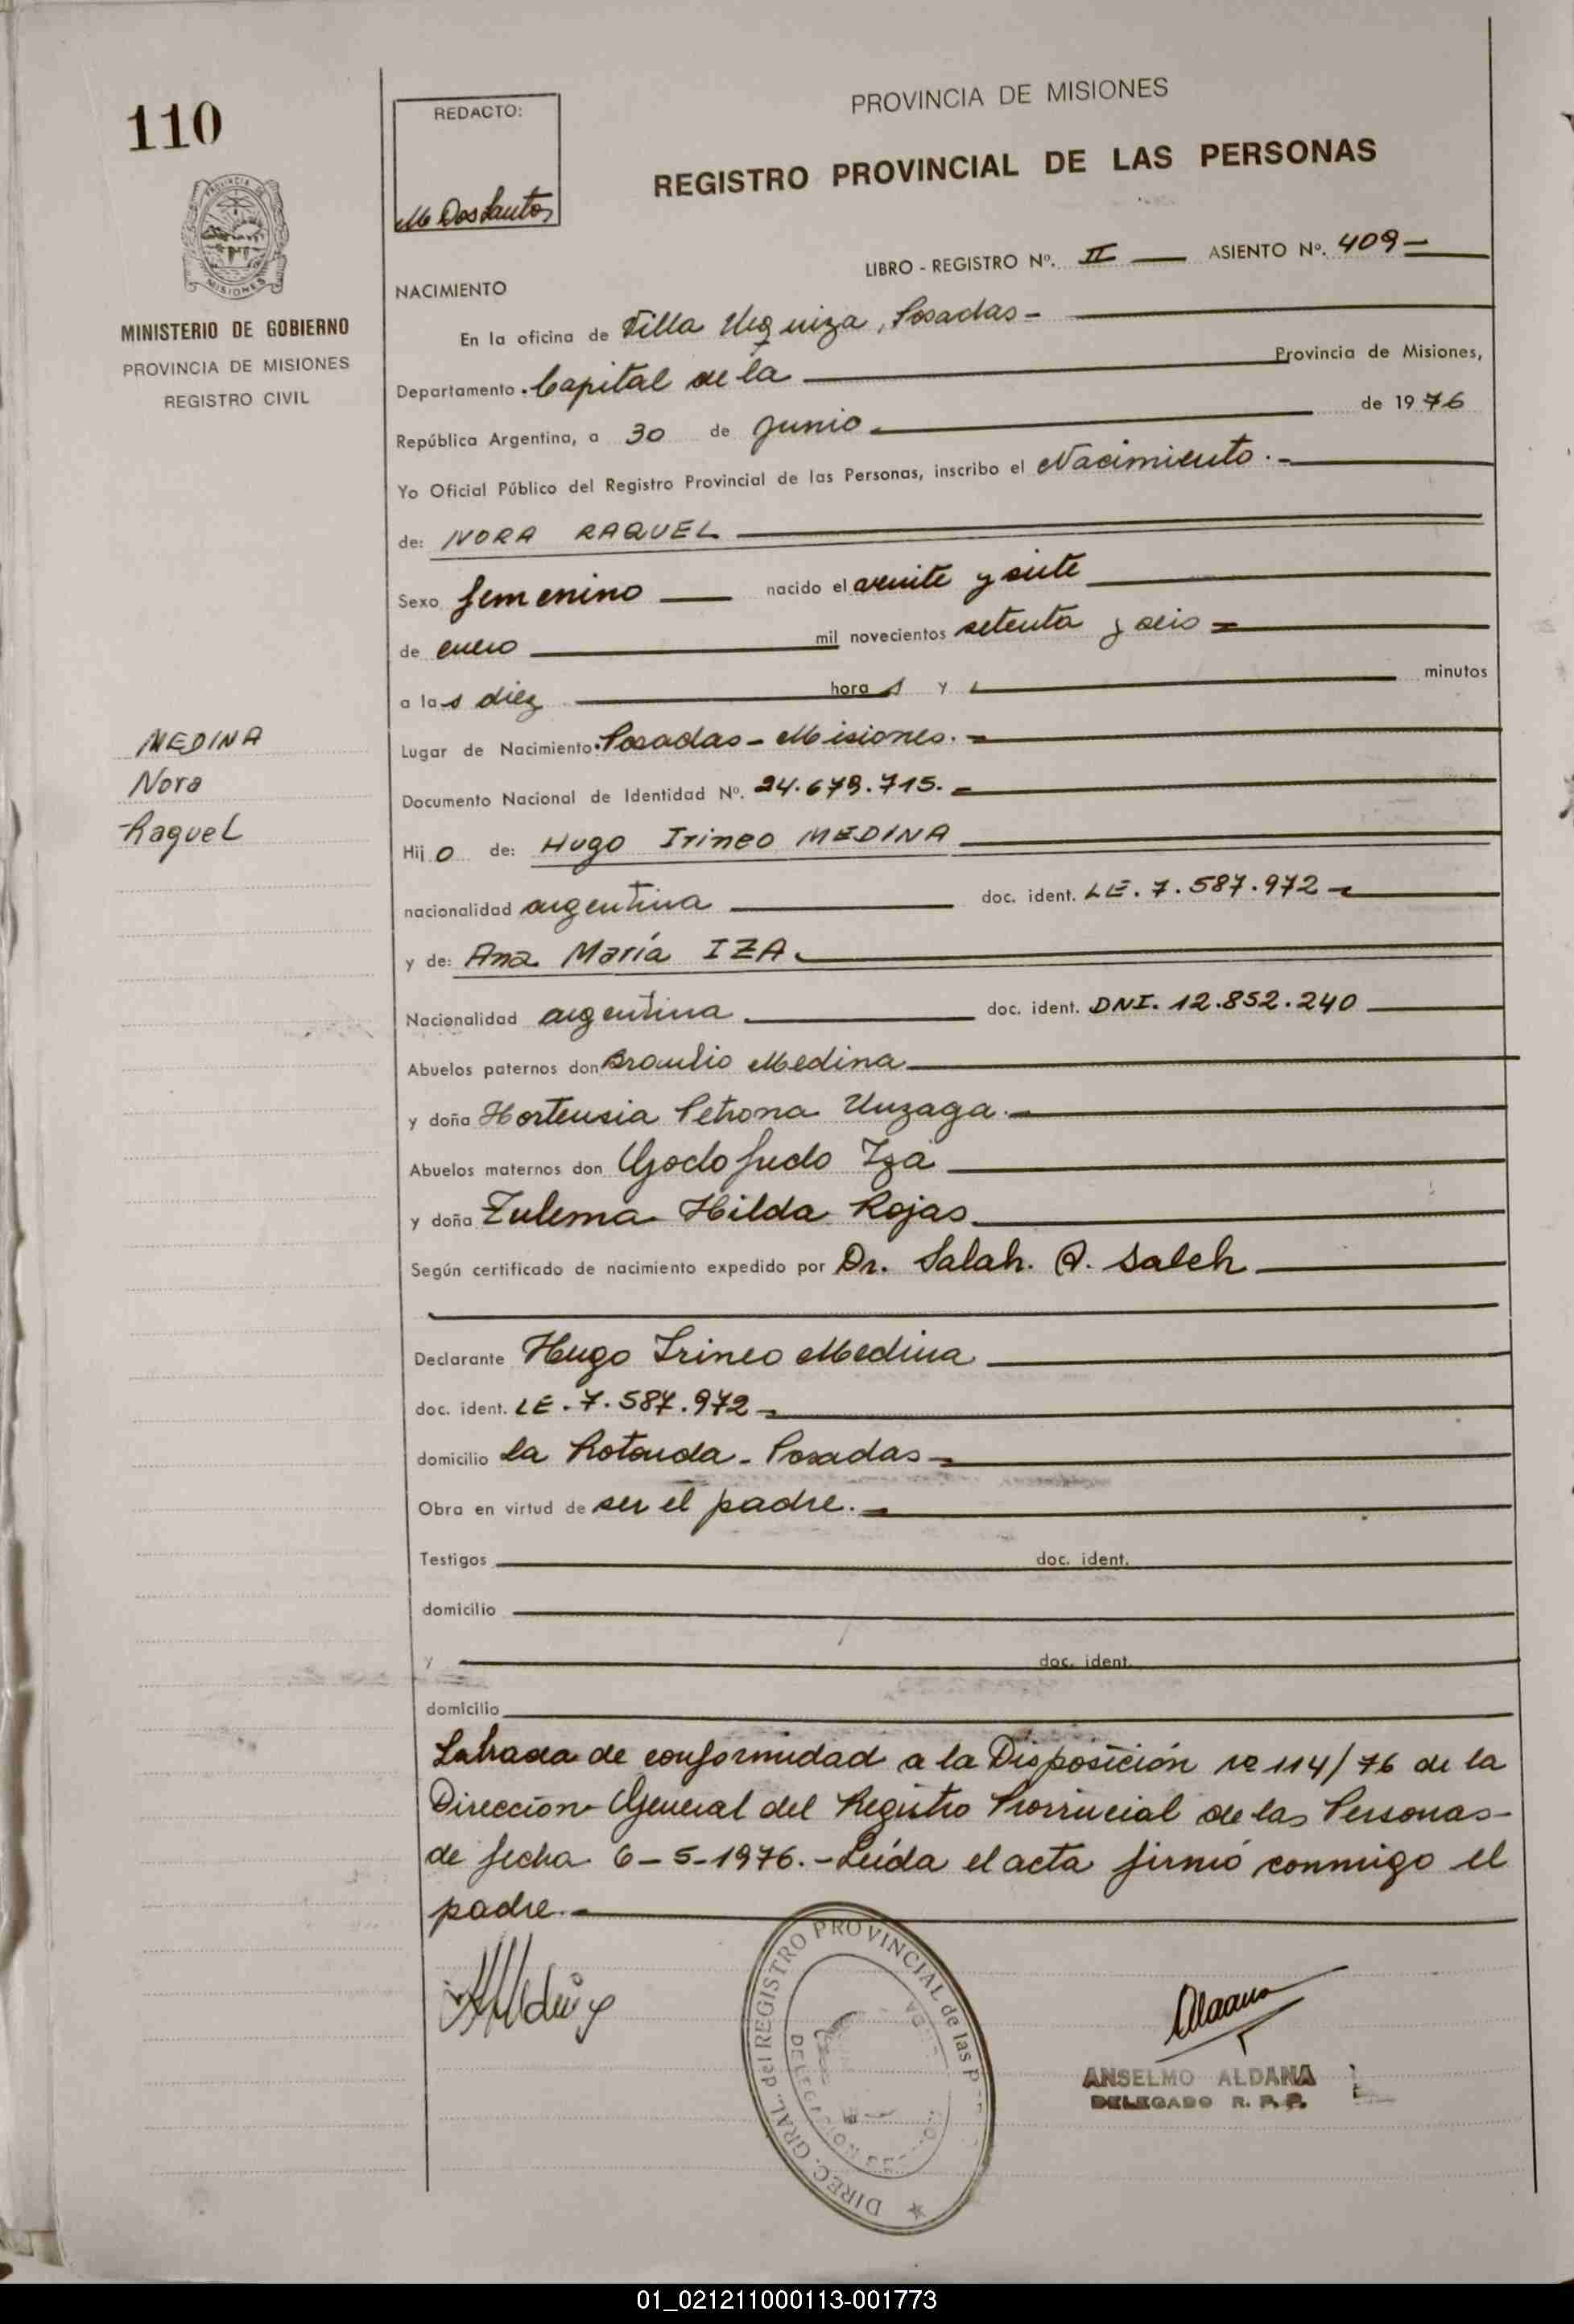 110
REDACTO:
M DosSantos
PROVINCIA DE MISIONES
REGISTRO PROVINCIAL DE LAS PERSONAS
PROVINCIA DE
MISIONES
MINISTERIO DE GOBIERNO
PROVINCIA DE MISIONES
REGISTRO CIVIL
LIBRO - REGISTRO Nº. II ASIENTO Nº. 409
NACIMIENTO
En la oficina de Villa Urquiza, Posadas
Departamento Capital de la Provincia de Misiones,
República Argentina, a 30 de junio de 1976
Yo Oficial Público del Registro Provincial de las Personas, inscribo el Nacimiento.
de: NORA RAQUEL
Sexo femenino nacido el veinte y siete
de enero mil novecientos setenta y seis
a las diez horas y minutos
MEDINA
Nora
Raquel
Lugar de Nacimiento Posadas - Misiones.
Documento Nacional de Identidad Nº. 24.679.715.
Hijo de: Hugo Irineo MEDINA
nacionalidad argentina doc. ident. LE. 7.587.972
y de: Ana María IZA
Nacionalidad argentina doc. ident. DNI. 12.852.240
Abuelos paternos don Braulio Medina
y doña Hortensia Petrona Unzaga.
Abuelos maternos don Godofredo Iza
y doña Zulema Hilda Rojas
Según certificado de nacimiento expedido por Dr. Salah. A. Saleh
Declarante Hugo Irineo Medina
doc. ident. LE. 7.587.972
domicilio La Rotonda - Posadas
Obra en virtud de ser el padre.
Testigos doc. ident.
domicilio
y doc. ident.
domicilio
Labrada de conformidad a la Disposición nº 114/76 de la
Dirección General del Registro Provincial de las Personas
de fecha 6-5-1976.- Leída el acta firmó conmigo el
padre.
DIREC. GRAL. del REGISTRO PROVINCIAL de las P
ANSELMO ALDANA
DELEGADO R. P. P.
01_021211000113-001773